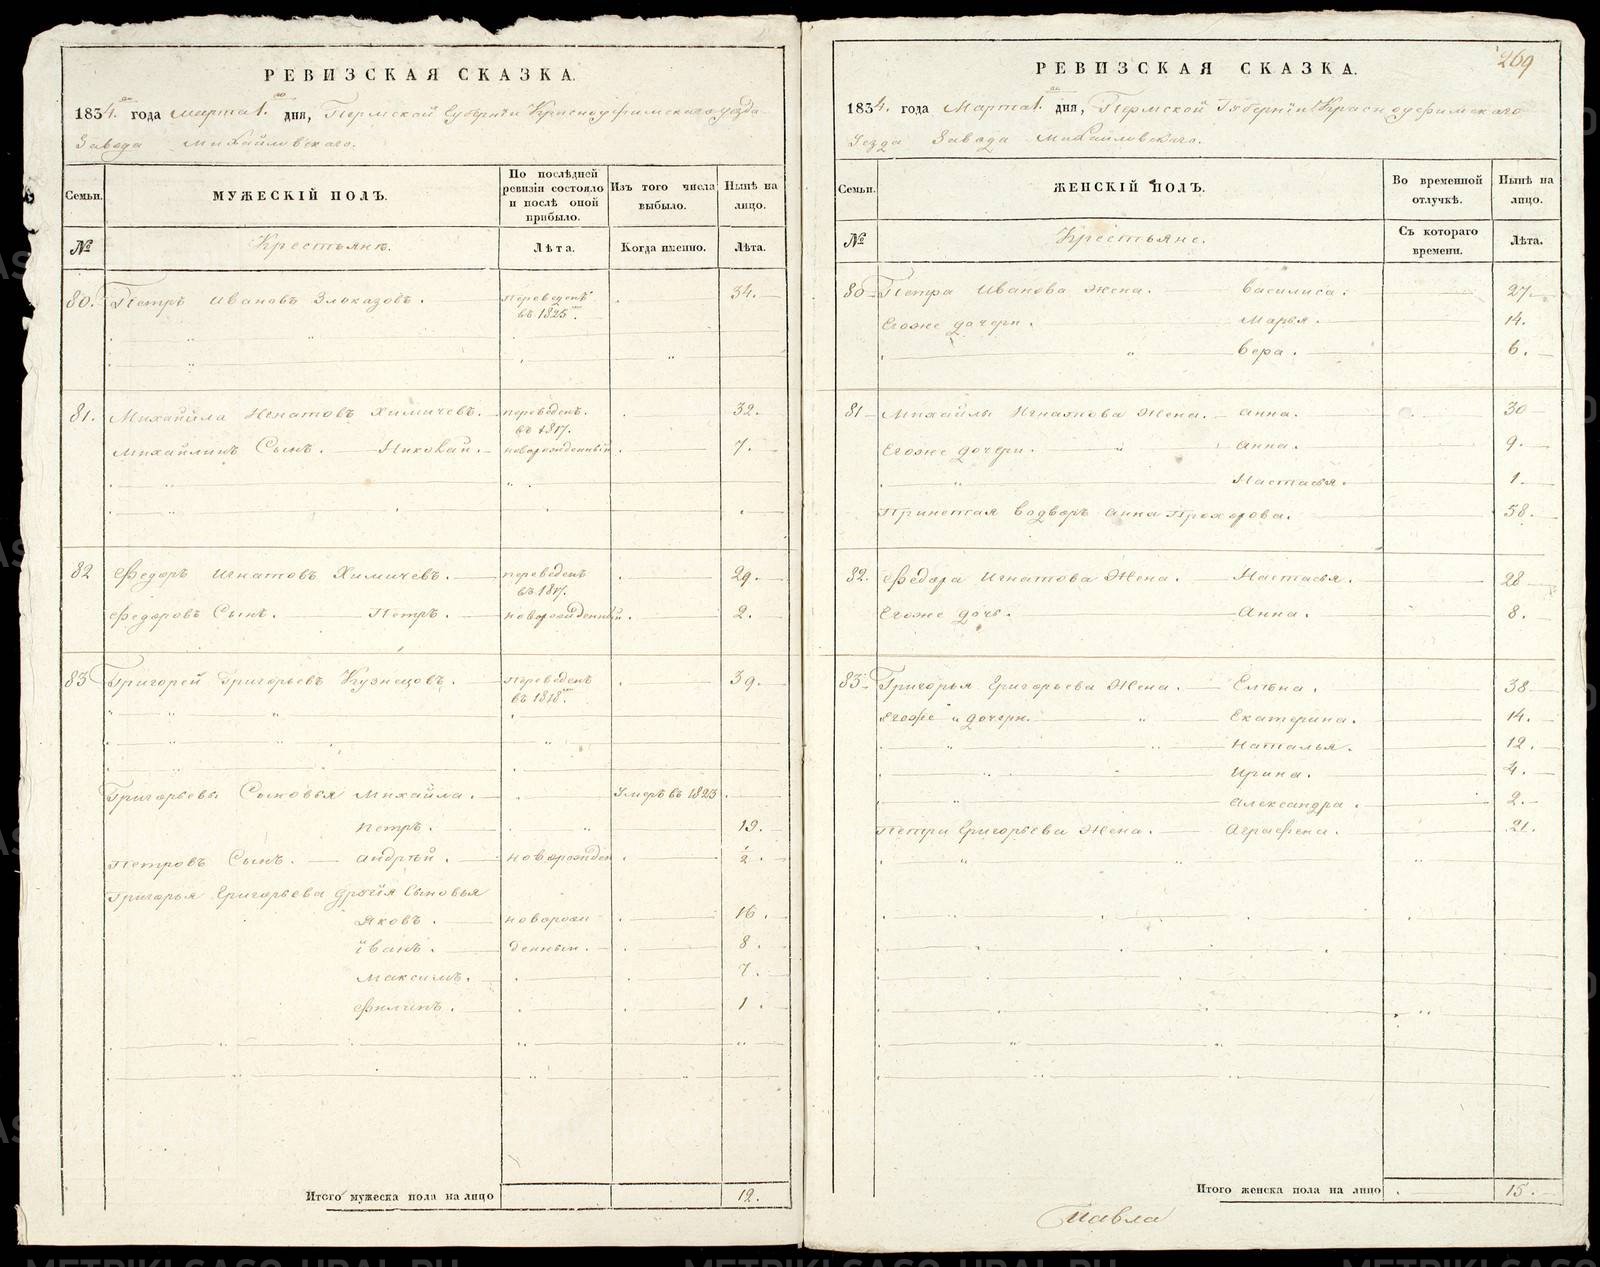 РЕВИЗСКАЯ СКАЗКА.
1834. года марта 1. дня, Пермской Губернiи Красноуфимскаго уезда
Завода Михайловскаго.
Семьи. МУЖЕСКIЙ ПОЛЪ. По послѣдней ревизiи состояло и послѣ оной прибыло. Изъ того числа выбыло. Нынѣ на лицо.
№ Крестьяне. Лѣта. Когда именно. Лѣта.
80. Петръ Ивановъ Злоказовъ. переведенъ 34.
въ 1825.
81. Михайла Игнатовъ Химичевъ. переведенъ. 32.
въ 1817.
Михайлинъ Сынъ. Николай. новорожденный 7.
82 Федоръ Игнатовъ Химичевъ. переведенъ 29.
въ 1817.
Федоровъ Сынъ. Петръ. новорожденный. 2.
83 Григорей Григорьевъ Кузнецовъ. переведенъ 39.
въ 1818.
Григорьевы Сыновья Михайла. Умеръ въ 1823
Петръ. 19.
Петровъ Сынъ. Андрѣй. новорожден 1/2.
Григорья Григорьева другiя Сыновья
Яковъ. новорож 16.
Iванъ. денныи. 8.
Максимъ. 7.
Филипъ. 1.
Итого мужеска пола на лицо 12.
269
РЕВИЗСКАЯ СКАЗКА.
1834. года Марта 1. дня, Пермской Губернiи Красноуфимскаго
Уезда Завода Михайловскаго.
Семьи. ЖЕНСКIЙ ПОЛЪ. Во временной отлучкѣ. Нынѣ на лицо.
№ Крестьяне. Съ котораго времени. Лѣта.
80 Петра Иванова жена. Василиса. 27.
Егоже дочери. Марья. 14.
Вера. 6.
81 Михайлы Игнатова Жена. Анна. 30
Егоже дочери. Анна. 9.
Настасья. 1.
Принетая водворъ Анна Прохорова. 58.
82. Федора Игнатова Жена. Настасья. 28
Егоже дочь. Анна. 8.
83. Григорья Григорьева Жена. Елѣна. 38.
Егоже дочери. Екатерина. 14.
Наталья. 12.
Ирина. 4.
Александра. 2.
Петра Григорьева Жена. Аграфена. 21.
Итого женска пола на лицо 15.
Павла
METRIKI.GASO-URAL.RU